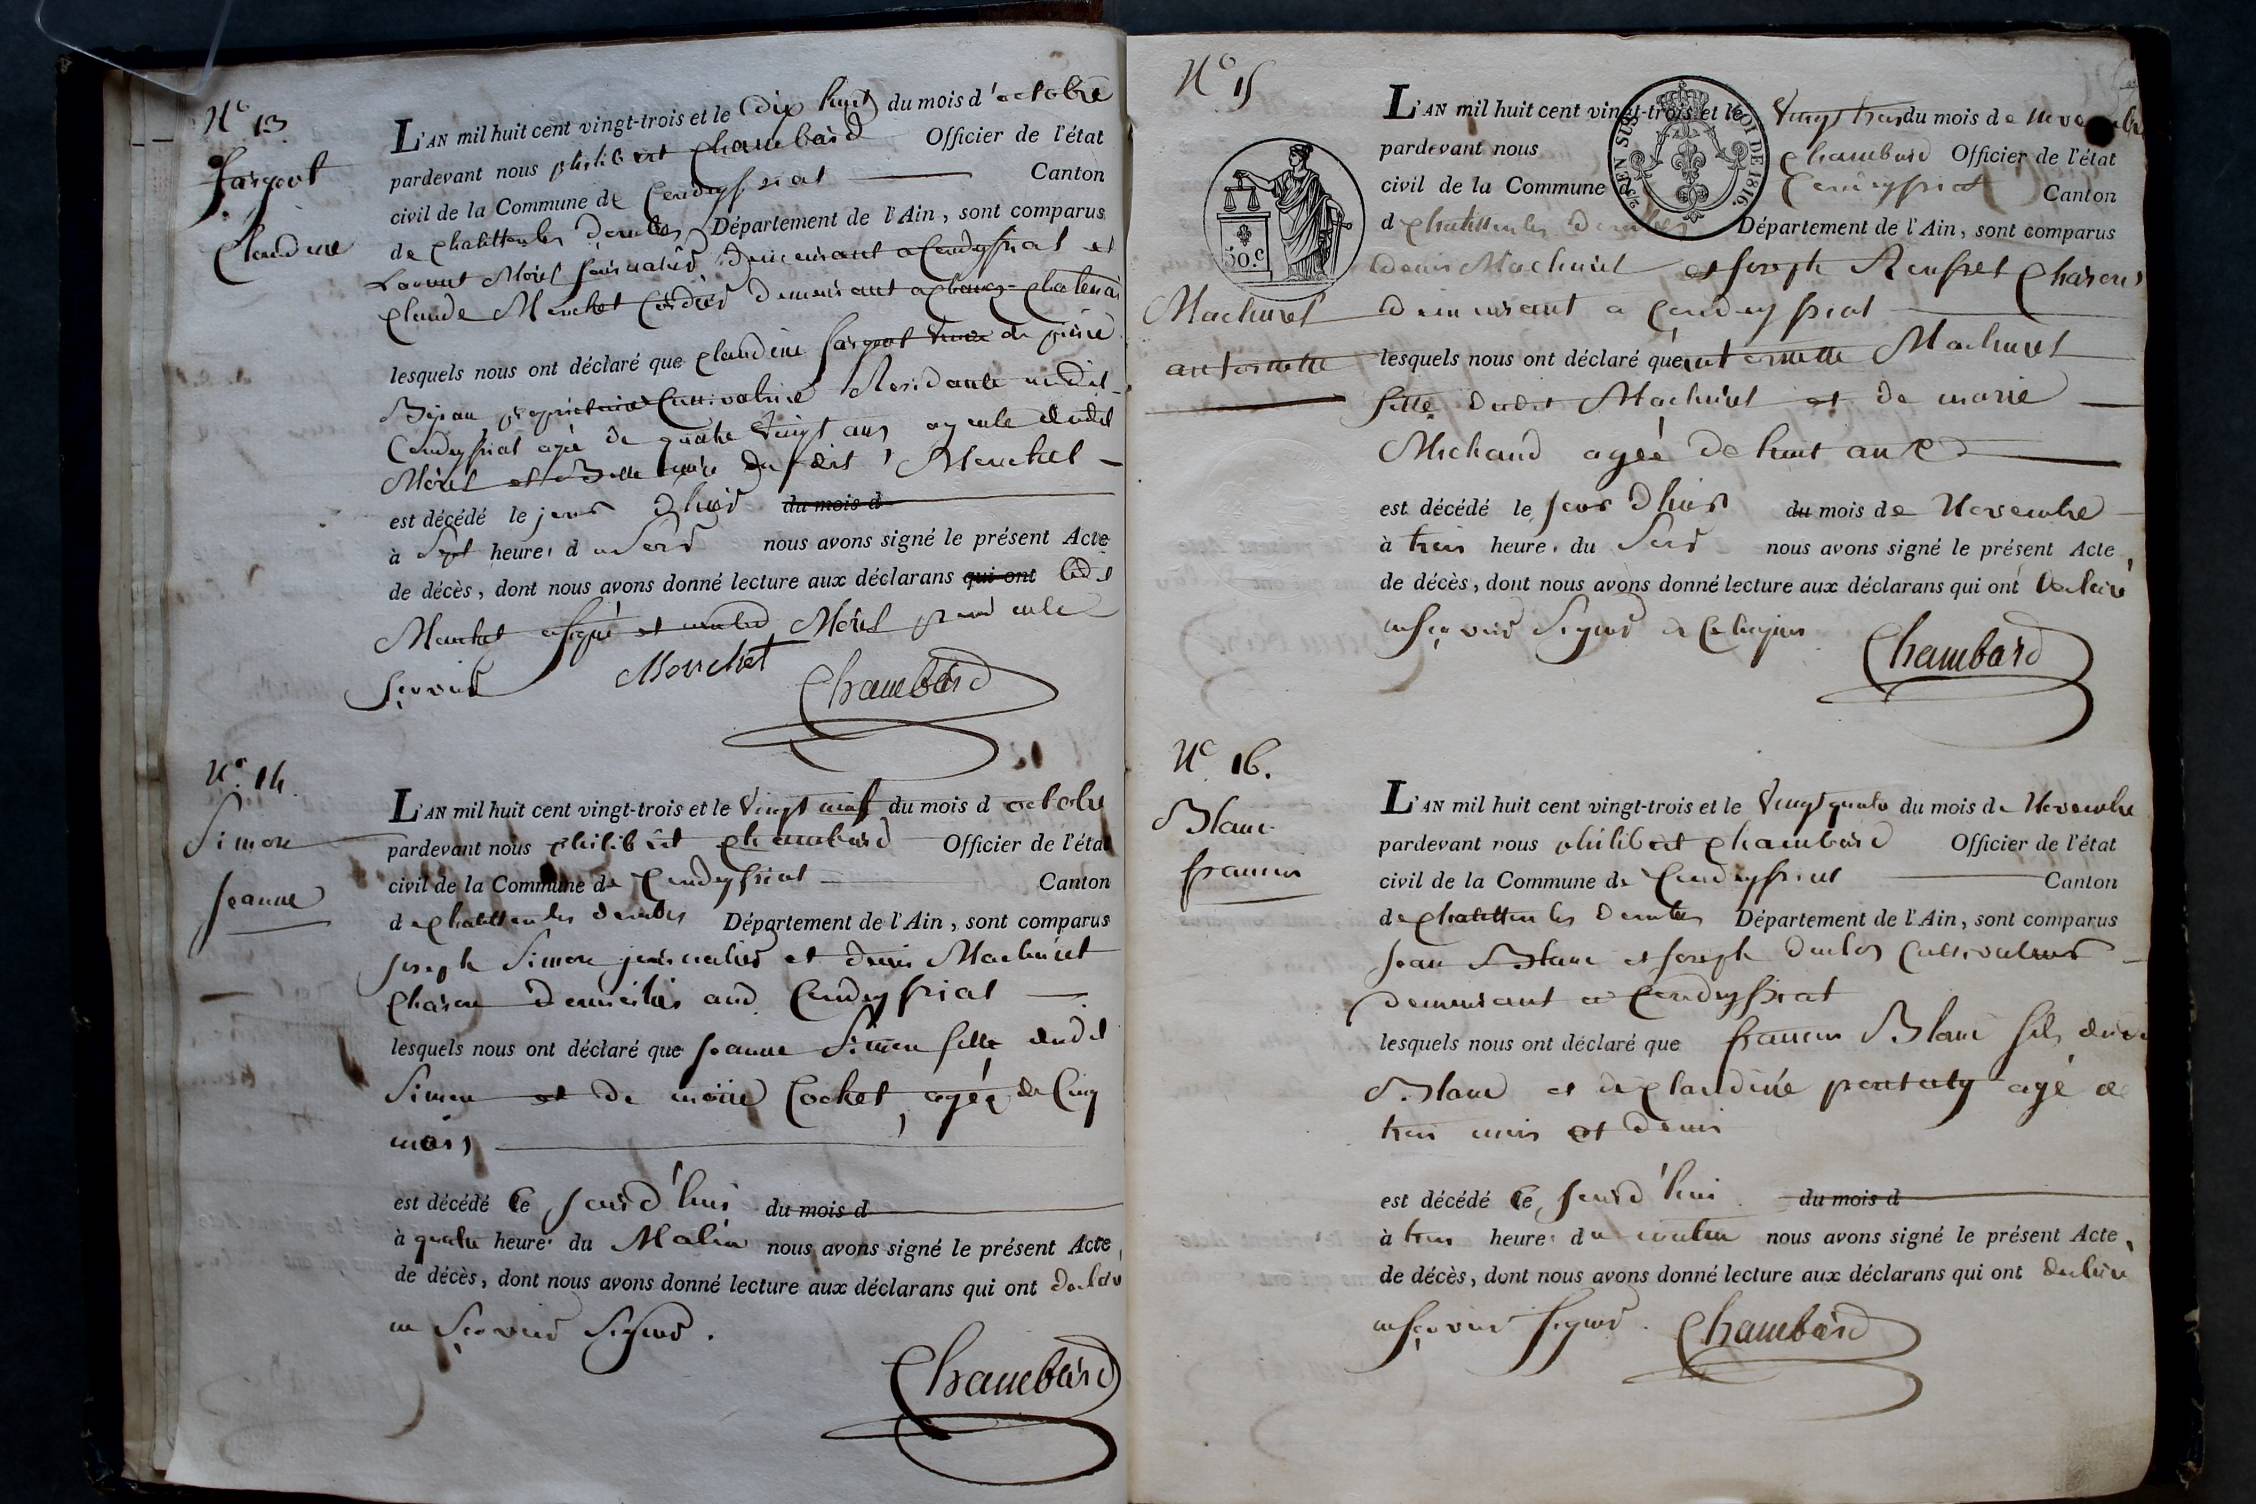 N° 13
fargeot
Claudine
L'AN mil huit cent vingt-trois et le dix huit du mois d'octobre
pardevant nous philibert Chambard Officier de l'état
civil de la Commune de Condeyssiat Canton
de chatillon les dombes Département de l'Ain, sont comparus
Laurent Morel journalier demeurant a Condeyssiat et
Claude Monchet Cordier demeurant a
lesquels nous ont déclaré que claudine fargeot veuve de pierre
Bejan propriétaire Cultivatrice Residante audit
Condeyssiat agé de quatre vingt ans ayeule dudit
Morel et Belle mère du dit Monchet
est décédé le jour d'hier du mois d
à Sept heures du Soir nous avons signé le présent Acte
de décès, dont nous avons donné lecture aux déclarans qui ont ledit
Monchet a signé et non led Morel pour ne le
sçavoir Monchet Chambard
N° 14
Simon
Jeanne
L'AN mil huit cent vingt-trois et le vingt neuf du mois d octobre
pardevant nous philibert chambard Officier de l'état
civil de la Commune de Condeyssiat Canton
de chatillon les dombes Département de l'Ain, sont comparus
Joseph Simon journalier et denis Machuret
Charon domiciliés aud. Condeyssiat
lesquels nous ont déclaré que Jeanne Simon fille dudit
Simon et de marie Cochet, agée de Cinq
mois
est décédé Ce jourd'hui du mois d
à quatre heures du Matin nous avons signé le présent Acte,
de décès, dont nous avons donné lecture aux déclarans qui ont déclaré
ne Sçavoir Signer.
Chambard
N° 15
50.C
2/3 EN SUS
LOI DE 1816.
Machuret
antoinette
L'AN mil huit cent vingt-trois et le vingt trois du mois de novembre
pardevant nous Chambard Officier de l'état
civil de la Commune Condeyssiat Canton
d chatillon les dombes Département de l'Ain, sont comparus
Denis Machuret et Joseph Renfret Charons
demeurant a Condeyssiat
lesquels nous ont déclaré que antoinette Machuret
fille dudit Machuret et de marie
Michaud agée de huit ans
est décédé le jour d'hier du mois de Novembre
à trois heures du Soir nous avons signé le présent Acte,
de décès, dont nous avons donné lecture aux déclarans qui ont déclaré
ne sçavoir Signer de Ce requis
Chambard
N° 16.
Blanc
francois
L'AN mil huit cent vingt-trois et le vingt quatre du mois de Novembre
pardevant nous philibert chambard Officier de l'état
civil de la Commune de Condeyssiat Canton
de chatillon les dombes Département de l'Ain, sont comparus
Jean Blanc et Joseph Duclos Cultivateurs
demeurant a Condeyssiat
lesquels nous ont déclaré que francois Blanc fils dudit
Blanc et de claudine agé de
trois mois et demi
est décédé Ce jourd'hui du mois d
à trois heures du matin nous avons signé le présent Acte,
de décès, dont nous avons donné lecture aux déclarans qui ont declaré
ne sçavoir signer. Chambard